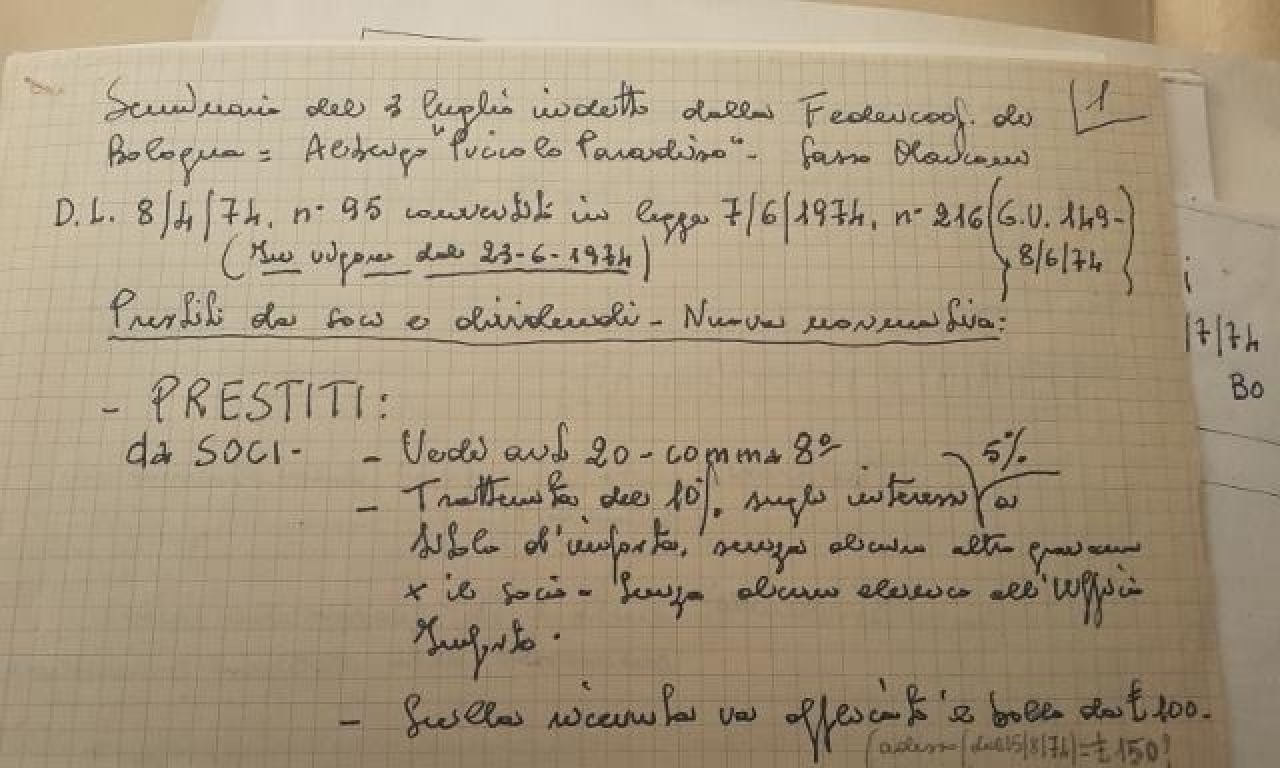 Seminario del 3 luglio indetto dalla Federcoop. di
1
Bologna = Albergo "Piccolo Paradiso" - Sasso Marconi
D.L. 8/4/74, n° 95 convertito in legge 7/6/1974, n° 216 (G.U. 149-
8/6/74)
(In vigore dal 23-6-1974)
Prestiti da soci e dividendi - Nuova normativa:
- PRESTITI:
da SOCI -
- Vedi art 20 - comma 8°
5%
- Trattenuta del 10% sugli interessi a
titolo d'imposta, senza alcun altro gravame
x il socio - Senza alcun elenco all'Ufficio
Imposte.
- Sulla ricevuta va applicato il bollo da £ 100.
(adesso (dal 15/8/74) = £ 150)
i
/7/74
BO